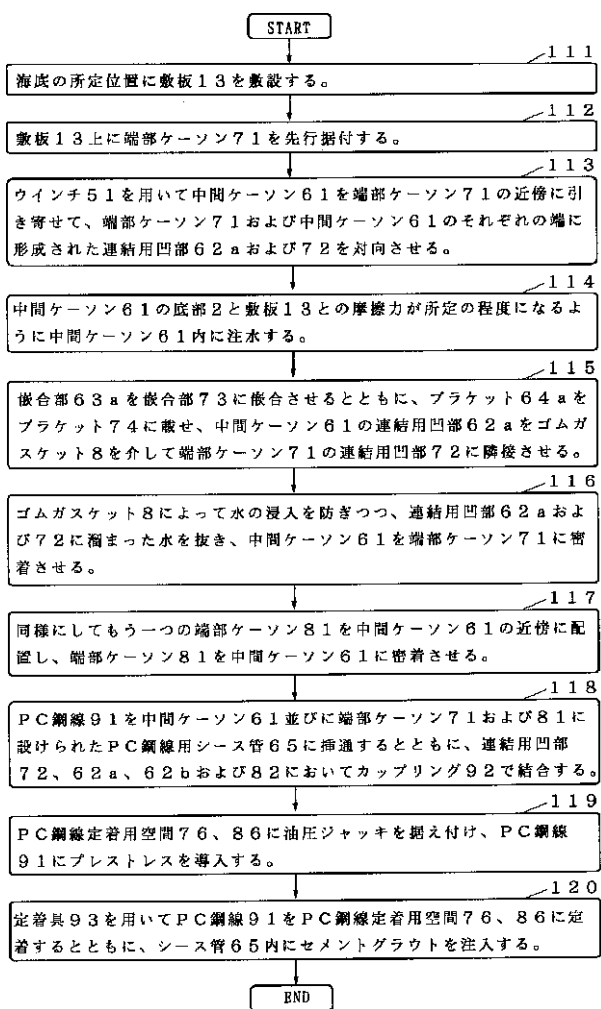 START
111
海底の所定位置に敷板13を敷設する。
112
敷板13上に端部ケーソン71を先行据付する。
113
ウインチ51を用いて中間ケーソン61を端部ケーソン71の近傍に引
き寄せて、端部ケーソン71および中間ケーソン61のそれぞれの端に
形成された連結用凹部62aおよび72を対向させる。
114
中間ケーソン61の底部2と敷板13との摩擦力が所定の程度になるよ
うに中間ケーソン61内に注水する。
115
嵌合部63aを嵌合部73に嵌合させるとともに、ブラケット64aを
ブラケット74に載せ、中間ケーソン61の連結用凹部62aをゴムガ
スケット8を介して端部ケーソン71の連結用凹部72に隣接させる。
116
ゴムガスケット8によって水の浸入を防ぎつつ、連結用凹部62aおよ
び72に溜まった水を抜き、中間ケーソン61を端部ケーソン71に密
着させる。
117
同様にしてもう一つの端部ケーソン81を中間ケーソン61の近傍に配
置し、端部ケーソン81を中間ケーソン61に密着させる。
118
PC鋼線91を中間ケーソン61並びに端部ケーソン71および81に
設けられたPC鋼線用シース管65に挿通するとともに、連結用凹部
72、62a、62bおよび82においてカップリング92で結合する。
119
PC鋼線定着用空間76、86に油圧ジャッキを据え付け、PC鋼線
91にプレストレスを導入する。
120
定着具93を用いてPC鋼線91をPC鋼線定着用空間76、86に定
着するとともに、シース管65内にセメントグラウトを注入する。
END